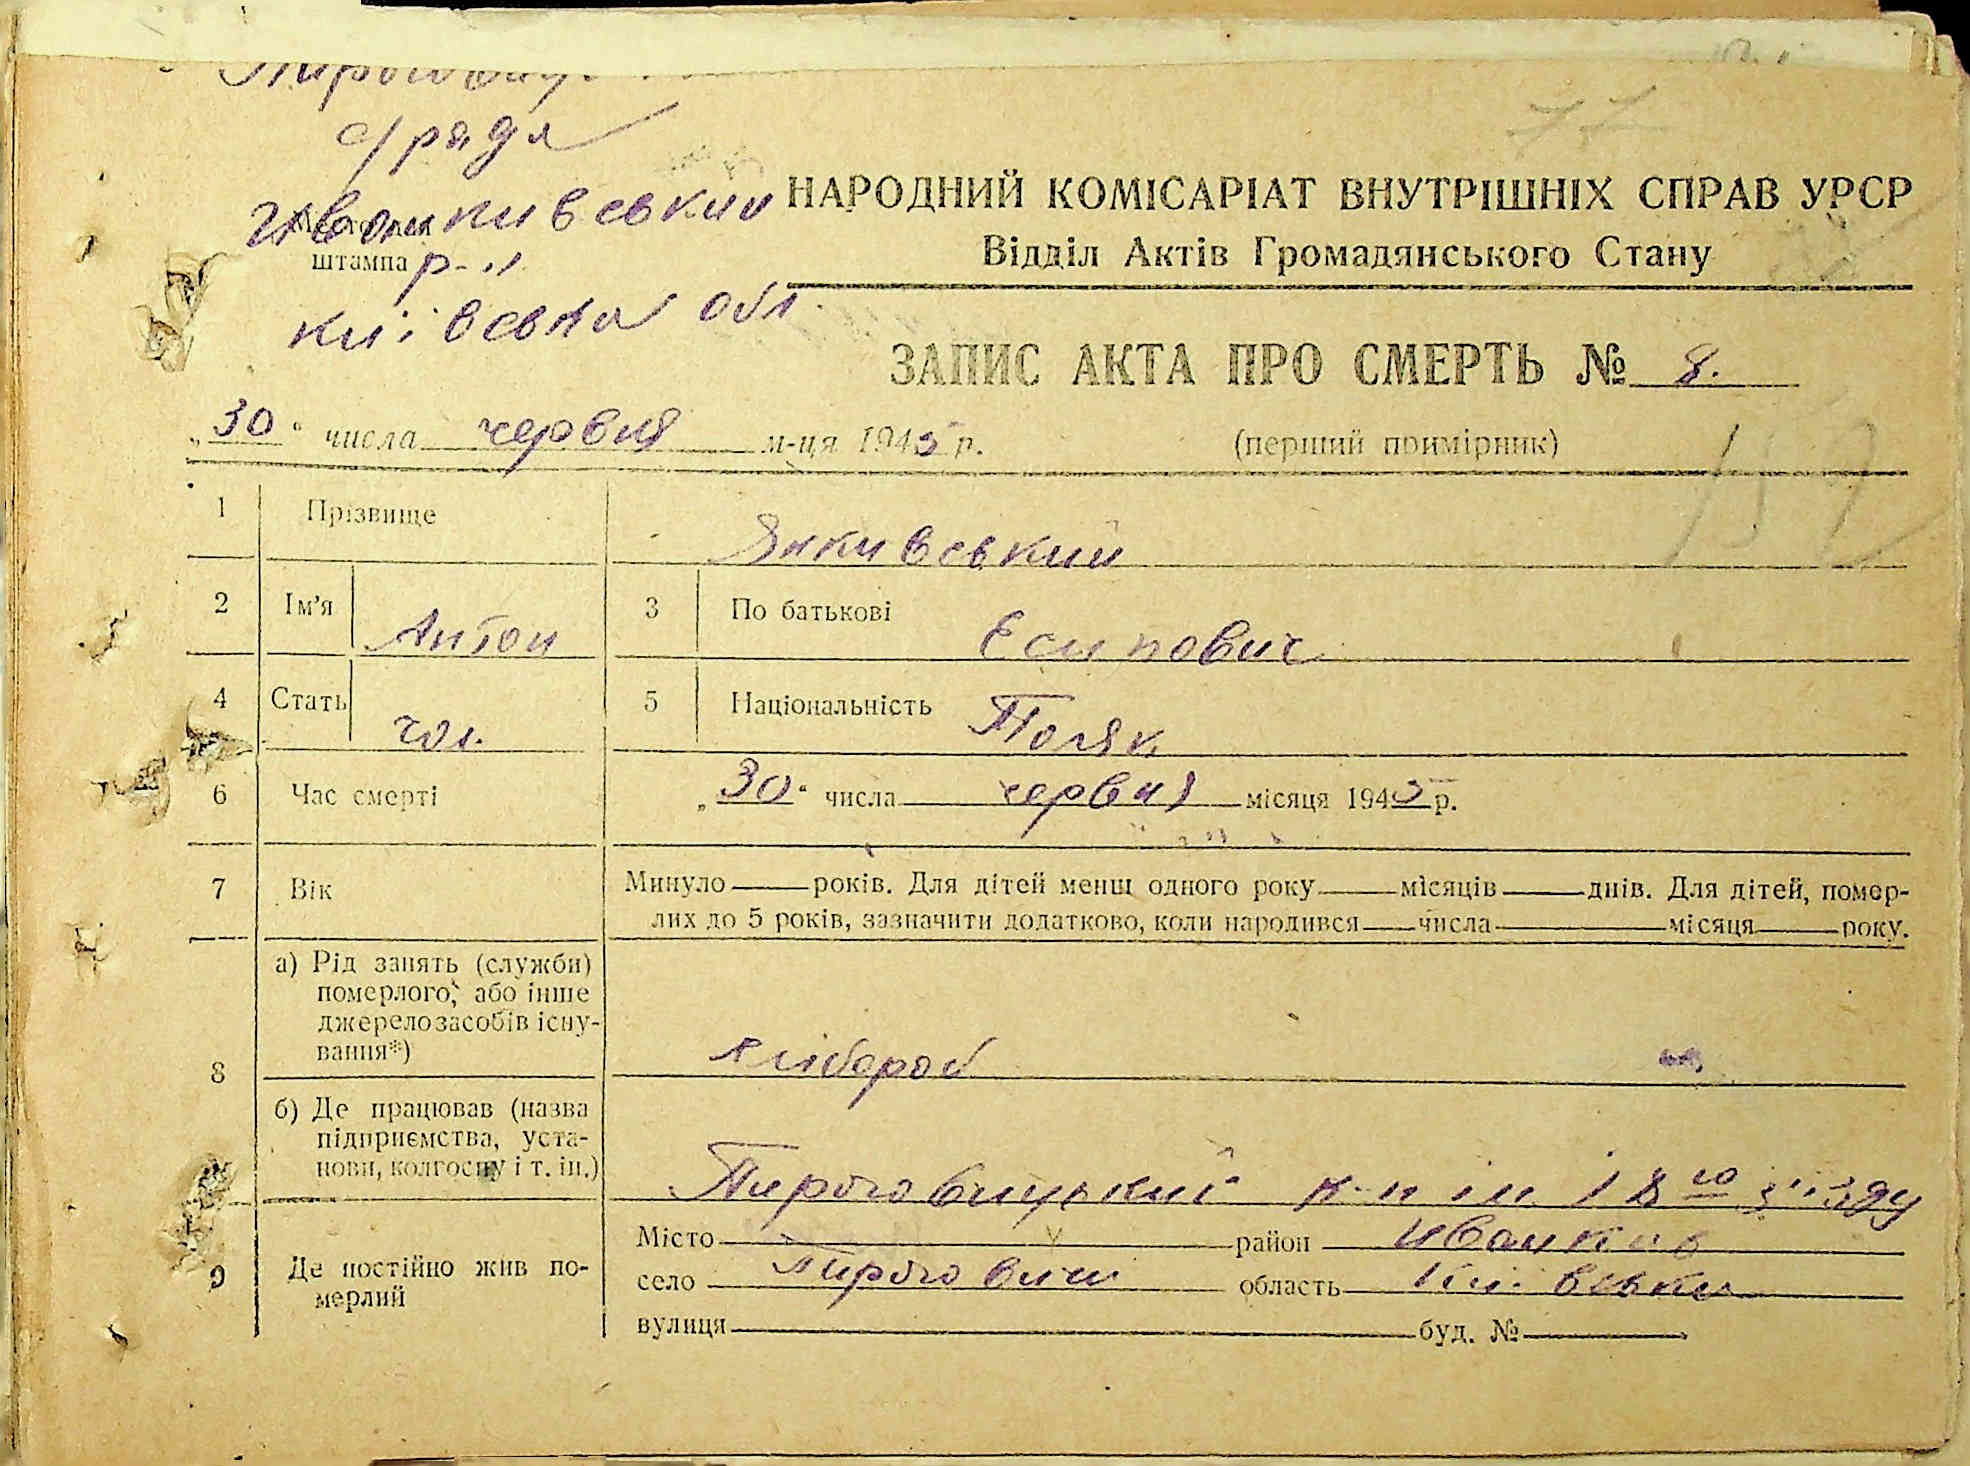 с/рада
Иванкивський
Місто для
штампа р-н
київська обл.
НАРОДНИЙ КОМІСАРІАТ ВНУТРІШНІХ СПРАВ УРСР
Відділ Актів Громадянського Стану
ЗАПИС АКТА ПРО СМЕРТЬ № 8.
„30“ числа червня м-ця 1945 р. (перший примірник)
1 Прізвище Янкивський
2 Ім'я Антон 3 По батькові Есипович
4 Стать чол. 5 Національність Поляк
6 Час смерті „30“ числа червня місяця 1945 р.
7 Вік Минуло ___ років. Для дітей менш одного року ___ місяців ___ днів. Для дітей, помер-
лих до 5 років, зазначити додатково, коли народився ___ числа ___ місяця ___ року.
8 а) Рід занять (служби)
померлого, або інше
джерело засобів існу-
вання*) хлібороб
б) Де працював (назва
підприємства, уста-
нови, колгоспу і т. ін.) Пироговицький к-п ім 18го з'їзду
9 Де постійно жив по-
мерлий
Місто ___ район Иванков
село Пироговичи область Київська
вулиця ___ буд. № ___